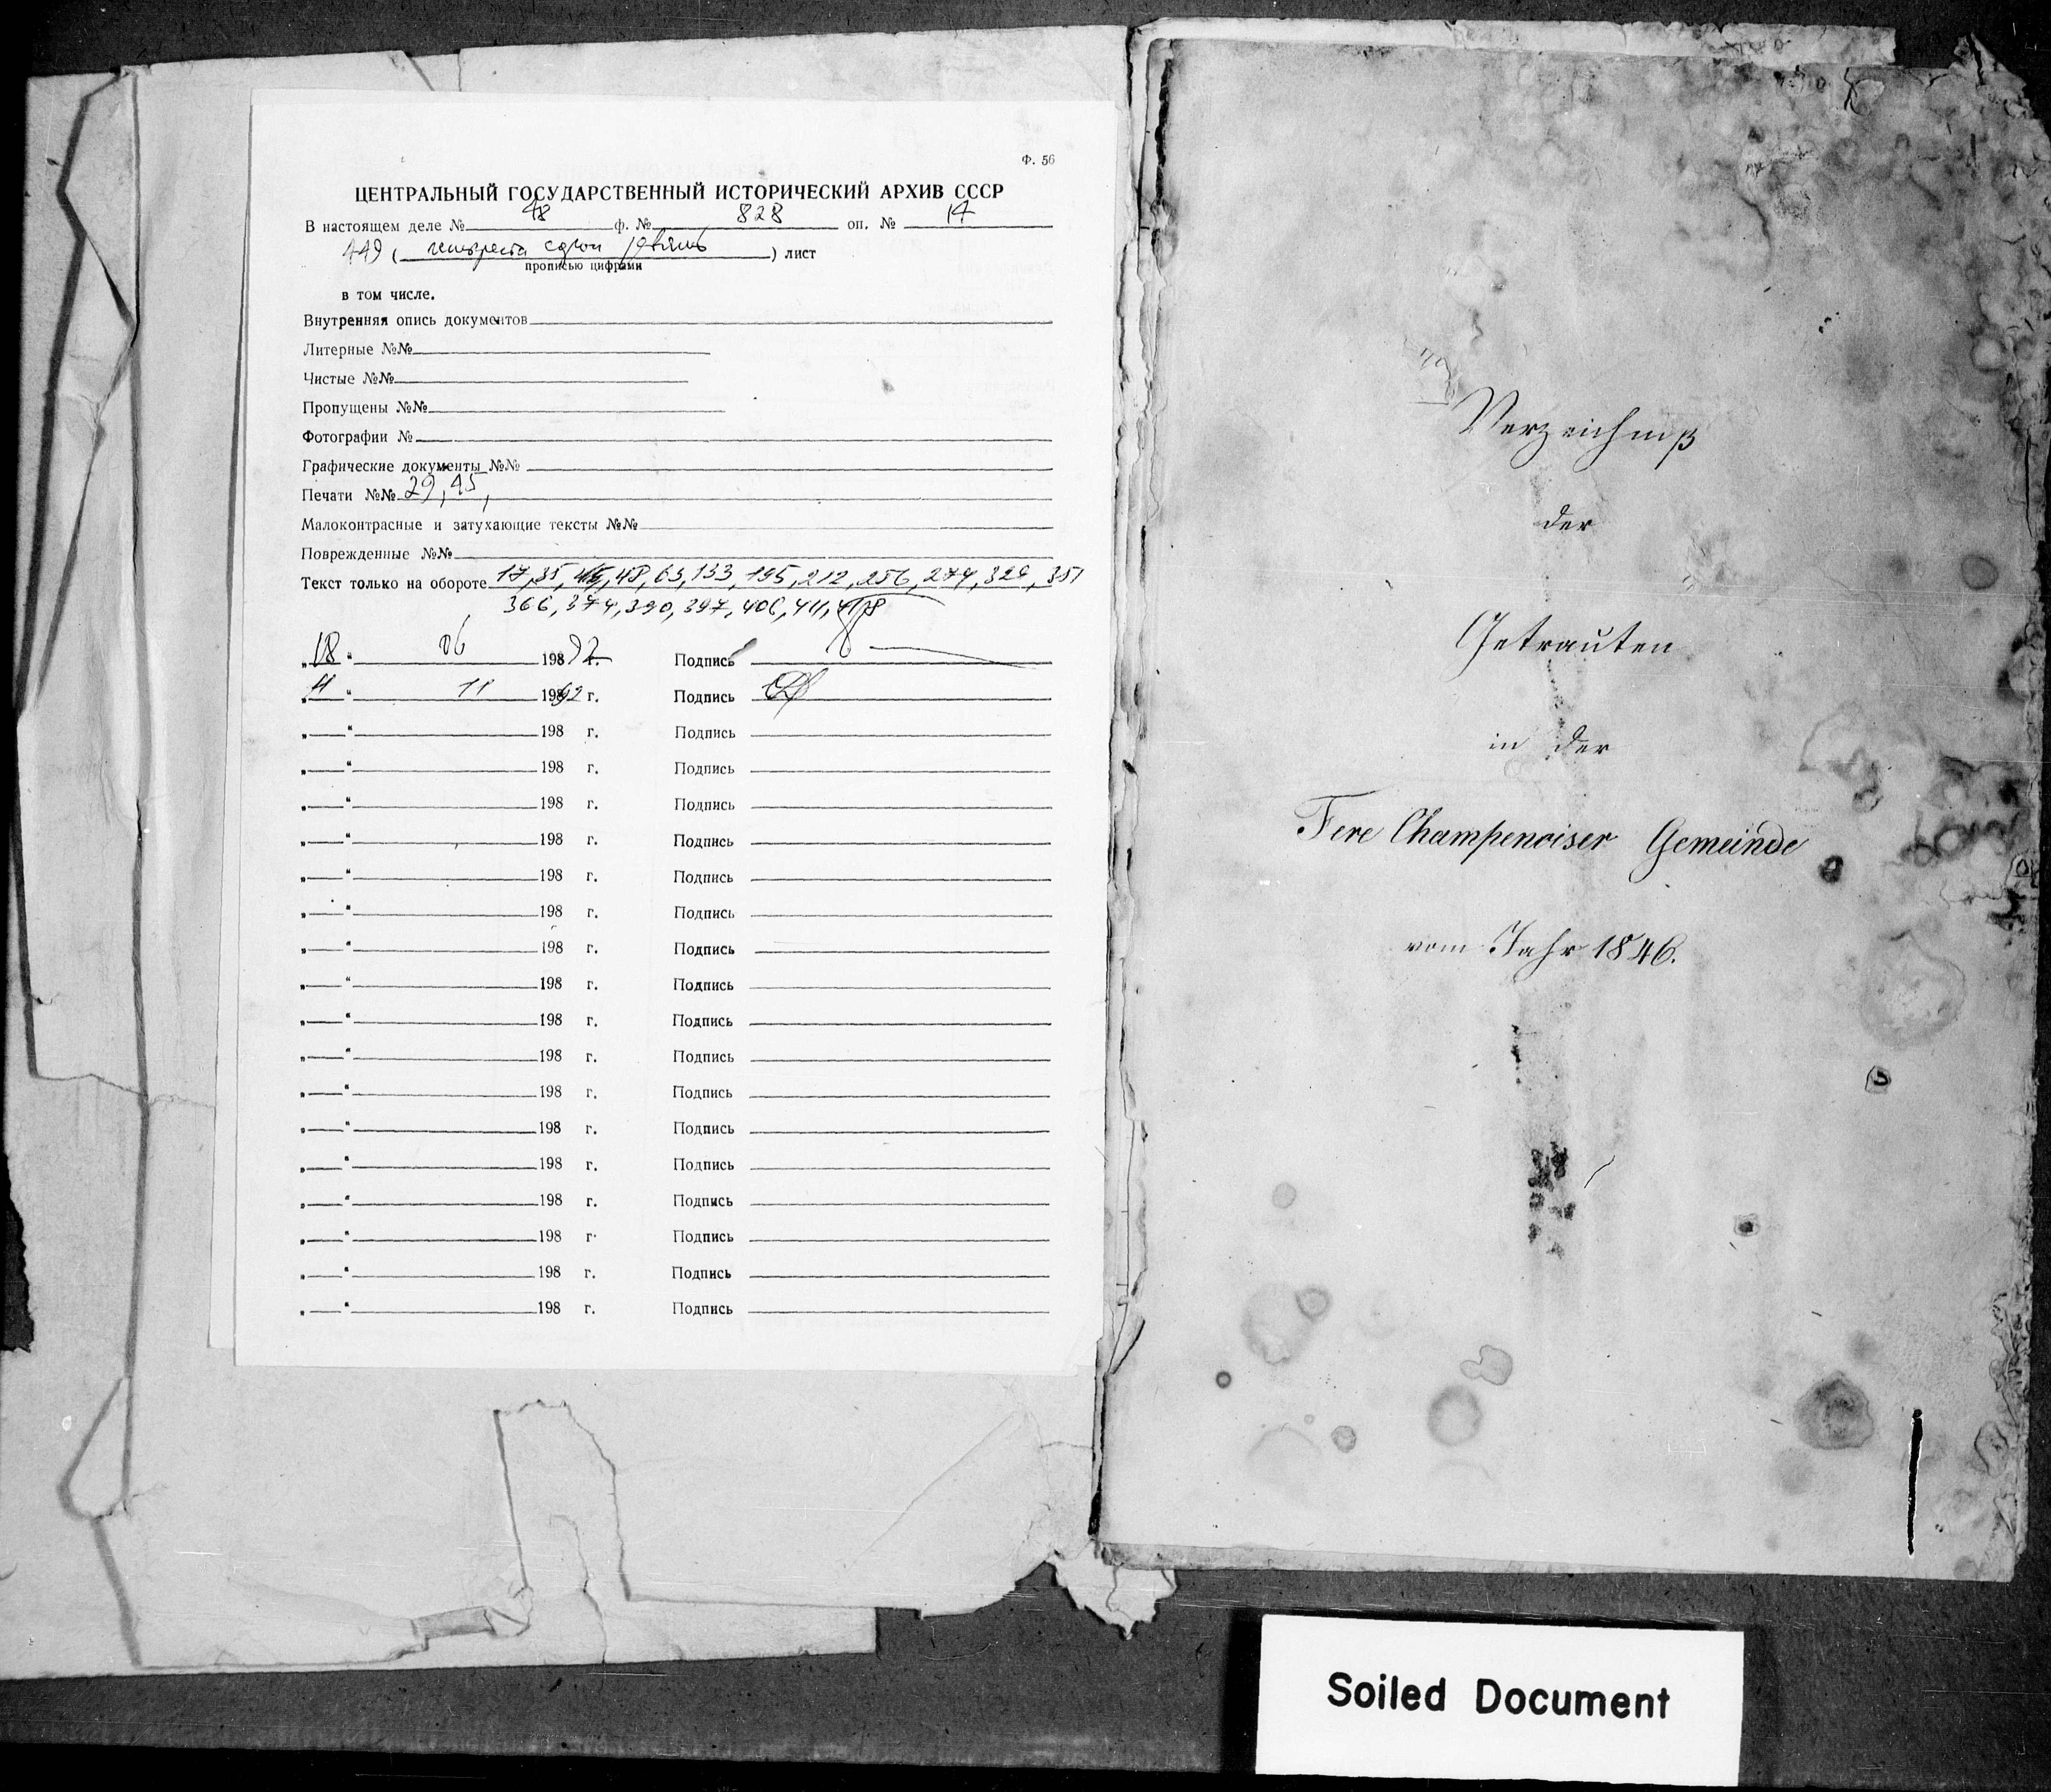 Ф. 56
ЦЕНТРАЛЬНЫЙ ГОСУДАРСТВЕННЫЙ ИСТОРИЧЕСКИЙ АРХИВ СССР
В настоящем деле № 48 ф. № 828 оп. № 14
449 ( четыреста сорок девять ) лист
прописью цифрами
в том числе.
Внутренняя опись документов
Литерные №№
Чистые №№
Пропущены №№
Фотографии №
Графические документы №№
Печати №№ 29, 45,
Малоконтрасные и затухающие тексты №№
Поврежденные №№
Текст только на обороте 17, 35, 48, 63, 133, 195, 212, 256, 274, 329, 351
366, 374, 390, 397, 406, 411,
„18“ 06 198 92 г. Подпись
„11“ 11 198 92 г. Подпись
„ “ 198 г. Подпись
„ “ 198 г. Подпись
„ “ 198 г. Подпись
„ “ 198 г. Подпись
„ “ 198 г. Подпись
„ “ 198 г. Подпись
„ “ 198 г. Подпись
„ “ 198 г. Подпись
„ “ 198 г. Подпись
„ “ 198 г. Подпись
„ “ 198 г. Подпись
„ “ 198 г. Подпись
„ “ 198 г. Подпись
„ “ 198 г. Подпись
„ “ 198 г. Подпись
„ “ 198 г. Подпись
„ “ 198 г. Подпись
Verzeichniß
der
Getrauten
in der
Fere Champenoiser Gemeinde
vom Jahr 1846.
Soiled Document